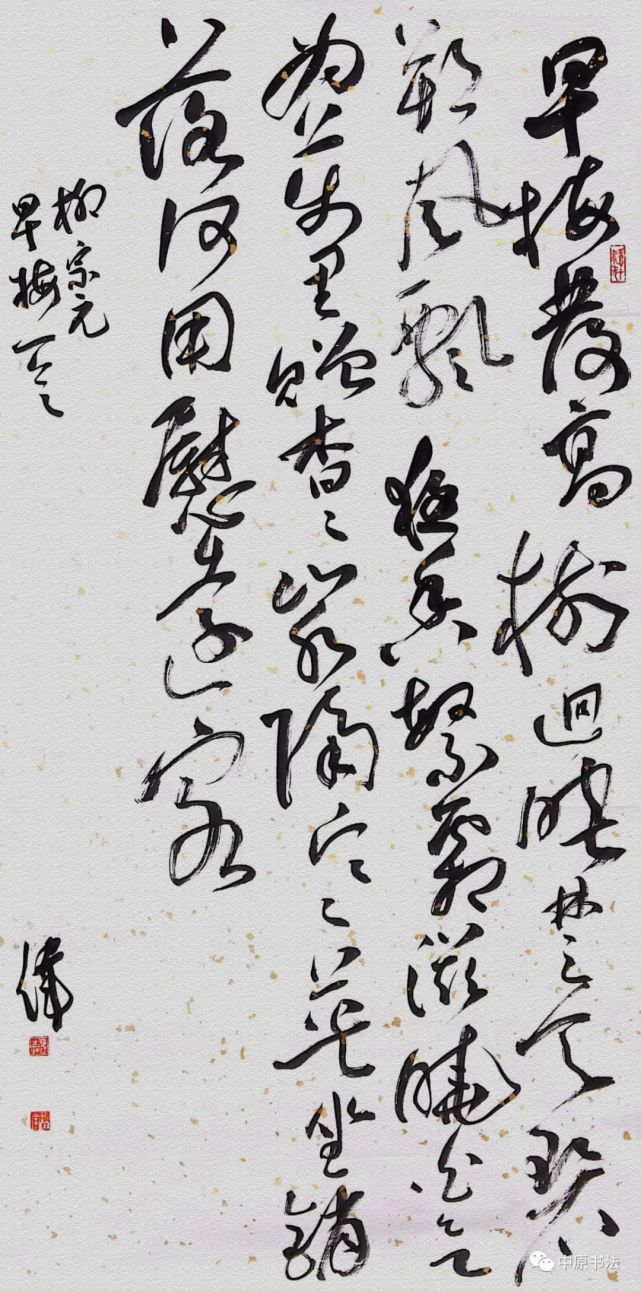 早梅發高樹迥映楚天碧
朔風飄夜香繁霜滋曉白欲
為萬里贈杳〻山水隔寒英坐銷
落何用慰遠客
柳宗元
早梅
偉
中原书法